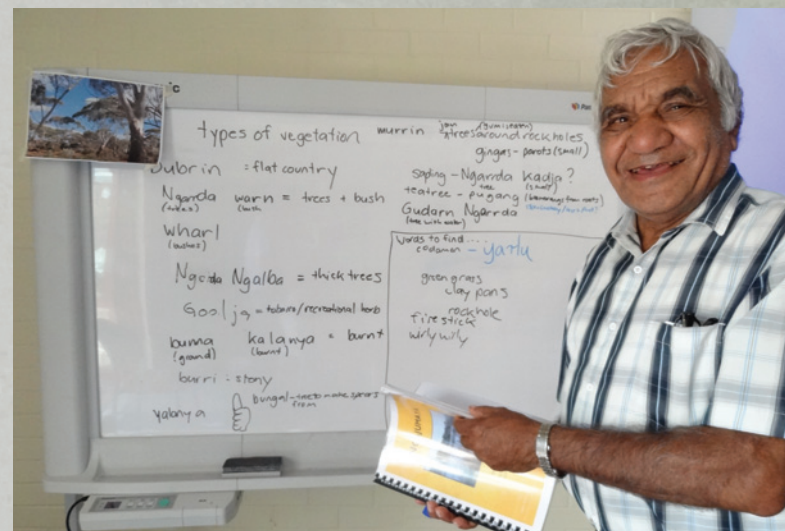 types of vegetation
Dubrin = flat country
Ngarrda warn = trees + bush
(trees) (bush
Wharl
(bushes)
Ngarda Ngalba = thick trees
Goolja = tobacco/recreational herb
buma kalanya = burnt
(ground) (burnt)
burri = stony
yalanya
bungal - tree to make spears
from
murrin
= trees around rockholes
gingas - parrots (small)
sapling - Ngarrda Kadja?
tree (small)
teatree - pugang (boomerangs from roots)
Gudarn Ngarrda
(tree with water)
words to find ....
- yarlu
green grass
clay pans
rockhole
firestick
wirlywirly